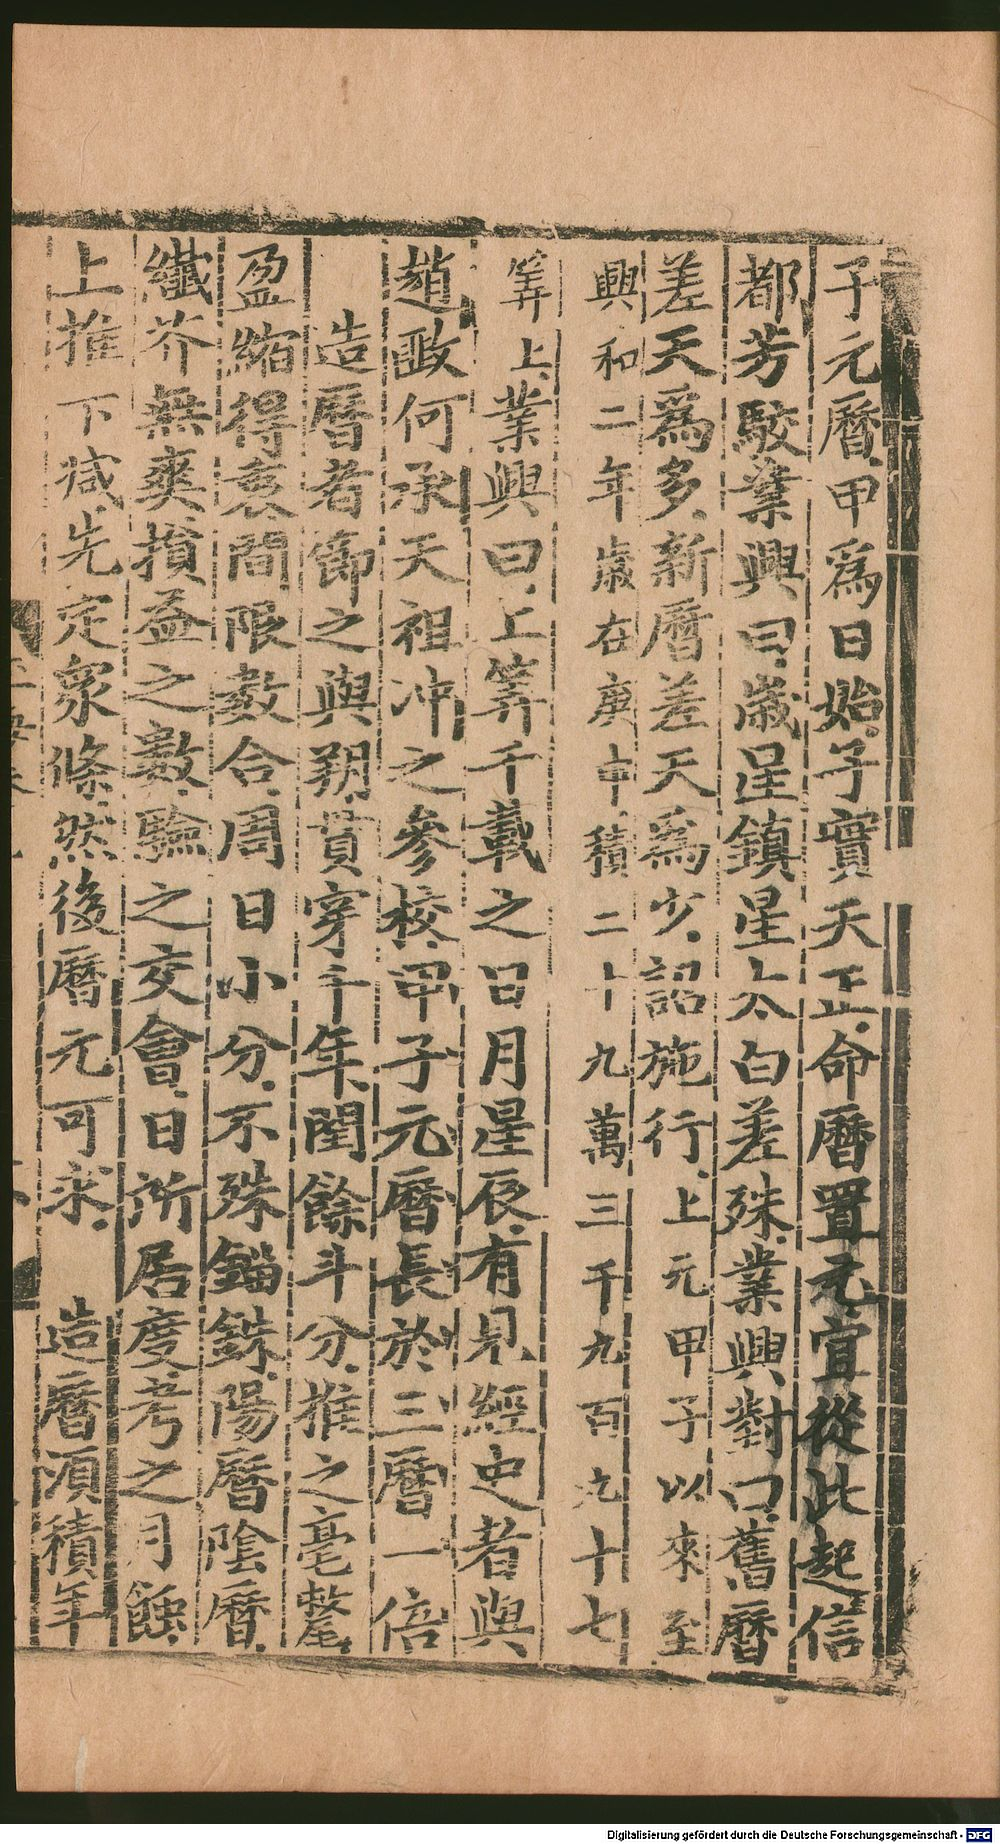 子元曆甲爲日始子實天正命曆置元宜從此起信
都芳駮業興曰歲星鎮星太白差殊業興對曰舊曆
差天爲多新曆差天爲少詔施行上元甲子以來至
興和二年歲在庚申積二十九萬三千九百九十七
筭上業興曰上筭千載之日月星辰有見經史者與
趙𢾺何承天祖冲之參校甲子元曆長於三曆一倍
造曆者節之與朔貫穿千年閏餘斗分推之毫釐
盈縮得衷間限數合周日小分不殊錙銖陽曆陰曆
纖芥無爽損益之數驗之交會日所居度考之月蝕
上推下减先定衆條然後曆元可求　造曆須積年
Digitalisierung gefördert durch die Deutsche Forschungsgemeinschaft - DFG